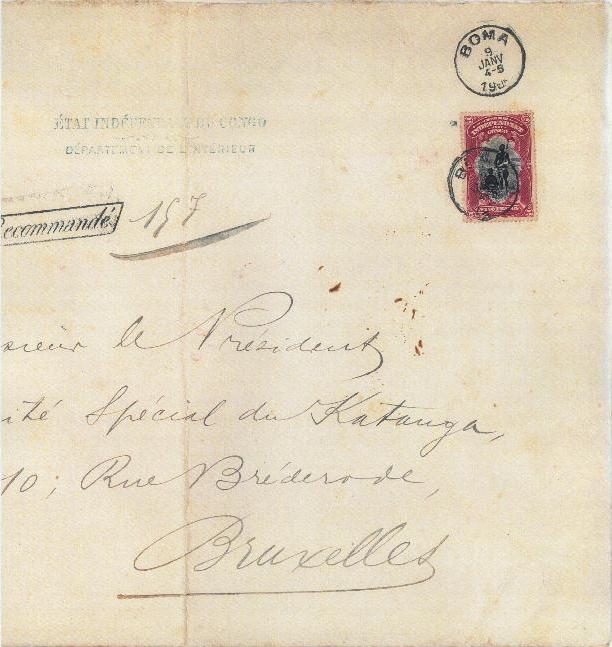 BOMA
9
JANV
4-5
ÉTAT INDÉPENDANT DU CONGO
DÉPARTEMENT DE L'INTÉRIEUR
INDEPENDANT
CONGO
ecommandé
157
sieur le Président
ité Spécial du Katanga,
10; Rue Bréderode,
Bruxelles